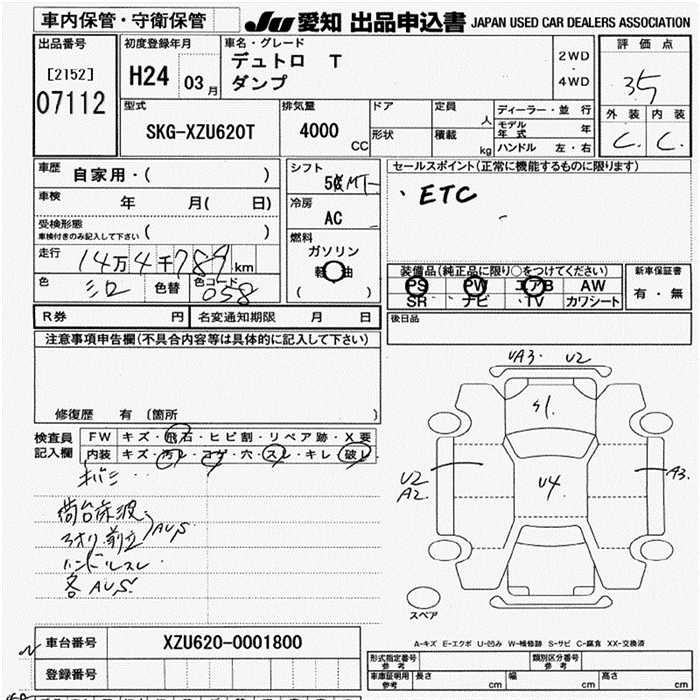 車内保管・守衛保管
JU 愛知 出品申込書 JAPAN USED CAR DEALERS ASSOCIATION
出品番号
[2152]
07112
初度登録年月
H24 03月
車名・グレード
デュトロ T
ダンプ
2WD
・
4WD
評価点
3.5
外装 内装
C. C.
型式
SKG-XZU620T
排気量
4000 CC
ドア
形状
定員 人
積載 kg
ディーラー・並行
モデル年式 年
ハンドル 左・右
車歴
自家用・( )
車検
年 月( 日)
受検形態
車検付きのみ記入して下さい ( )
走行
14万4千789km
色
シロ
色替
色コード
058
シフト
5速MT
冷房
AC
燃料
ガソリン
軽油
( )
セールスポイント(正常に機能するものに限ります)
・ETC
装備品(純正品に限り○をつけてください)
PS PW エアB AW
SR ナビ TV カワシート
新車保証書
有・無
R券 円
名変通知期限 月 日
後日品
注意事項申告欄(不具合内容等は具体的に記入して下さい)
修復歴 有 〔箇所 〕
検査員
記入欄
FW キズ・飛石・ヒビ割・リペア跡・X要
内装 キズ・汚レ・コゲ・穴・スレ・キレ・破レ
荷台床波
アオリ前立 AUS
ハンドルスレ
各AUS
UA3. U2
S1.
U4
U2
A2.
A3.
スペア
A-キズ E-エクボ U-凹み W-補修跡 S-サビ C-腐食 XX-交換済
車台番号
XZU620-0001800
登録番号
形式指定番号
参考
類別区分番号
参考
車庫証明用
参考
長さ cm 幅 cm 高さ cm